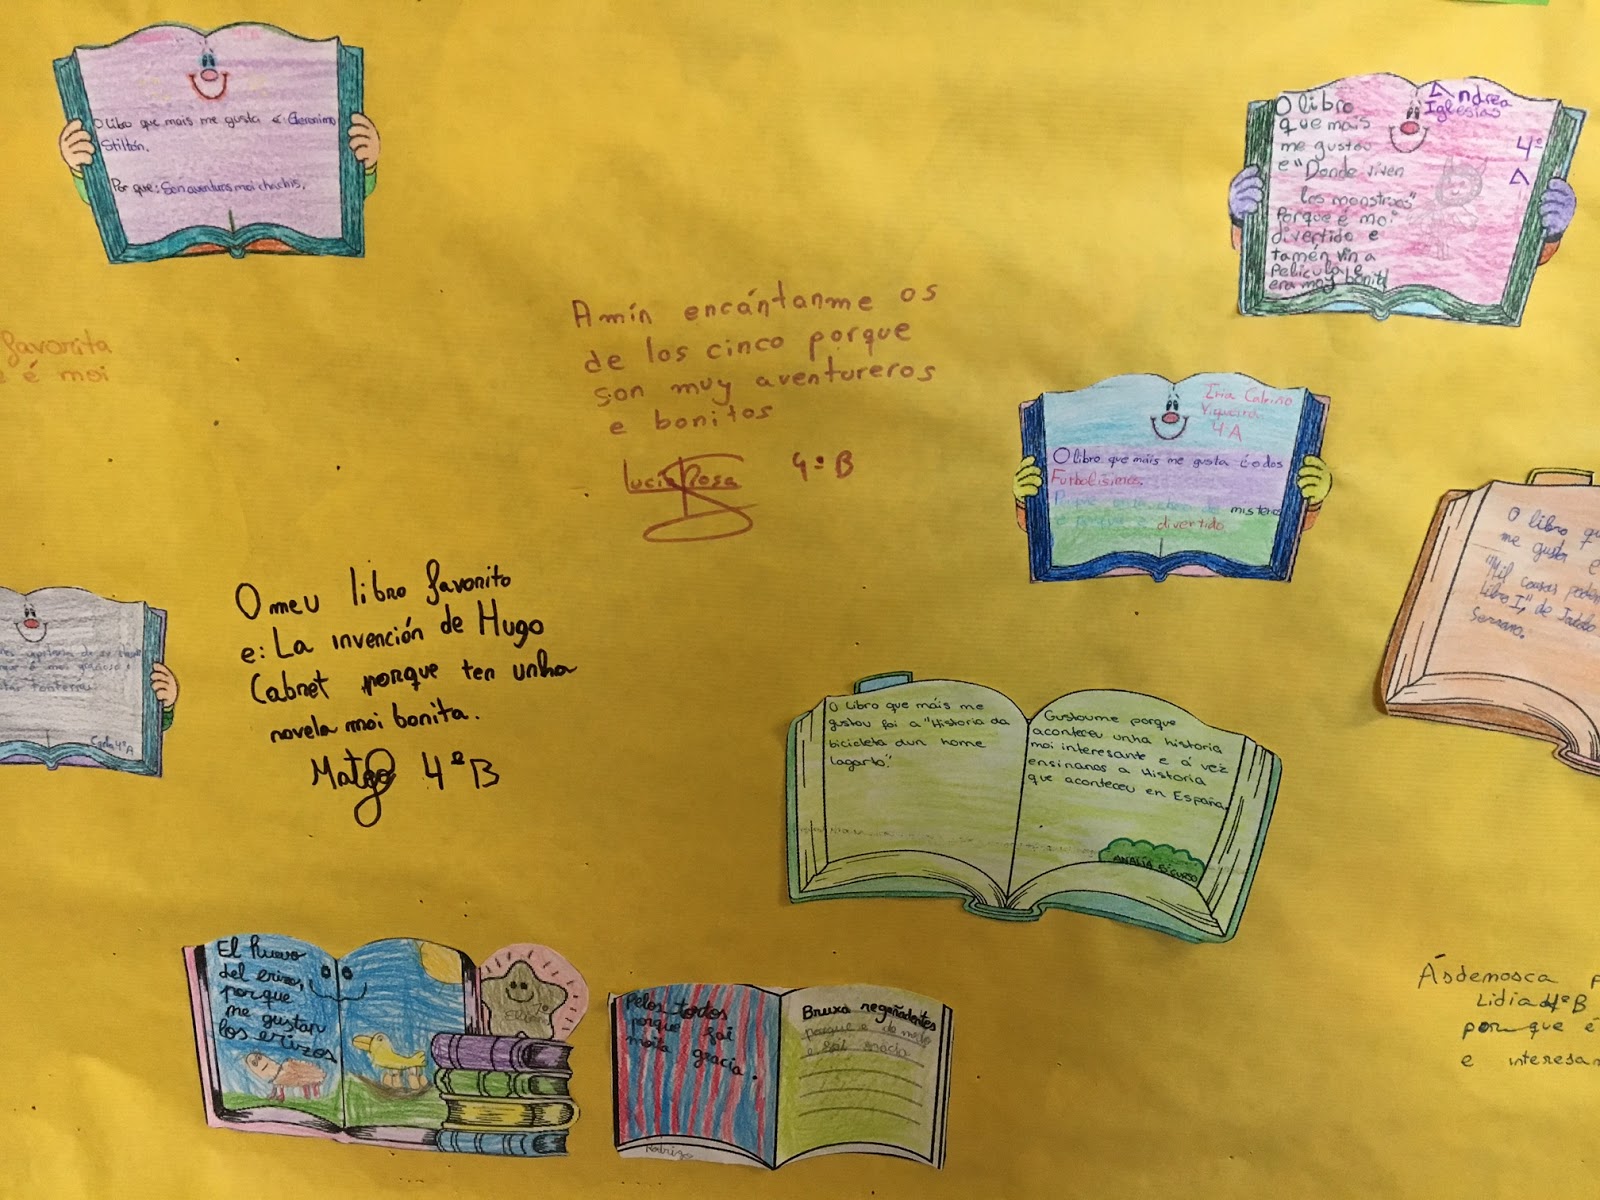 O libro que mais me gusta é Geronimo
Stiltón.
Por que: Son aventuras moi chachis.
O libro
que máis
me gustou
e "Donde viven
los monstruos"
Porque é moi
divertido e
tamén vin a
Película e
era moy bonita
Andrea
Iglesias
4º
A
favorita
é moi
A min encántanme os
de los cinco porque
son muy aventureros
e bonitos
Lucía Rosa 4º B
Iria
4 A
O libro que máis me gusta é o dos
Futbolísimos.
misterio
divertido
O libro
me gusta e
"Mil cousas
libro I", de
Serrano.
O meu libro favorito
e: La invención de Hugo
Cabret porque ten unha
novela moi bonita.
Mateo 4º B
4ºA
O libro que máis me
gustou foi a "Historia da
bicicleta dun home
lagarto".
Gustoume porque
aconteceu unha historia
moi interesante e á vez
ensinanos a Historia
que aconteceu en España.
ANALÍA 5º CURSO
El huevo
del erizo,
porque
me gustan
los erizos
Pelos todos
porque fai
moita gracia.
Rodrigo
Bruxa regañadentes
porque e de medo
e fai gracia
Ásdemosca
Lidia 4º B
porque é
e